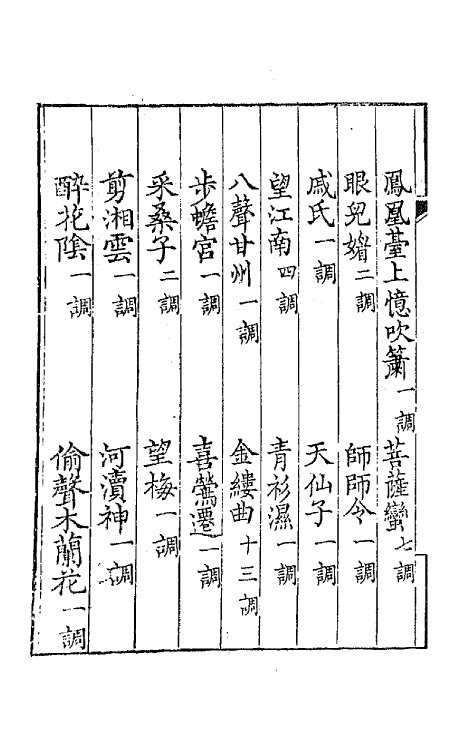 鳳凰臺上憶吹簫一調 菩薩蠻七調
眼兒媚二調 師師令一調
戚氏一調 天仙子一調
望江南四調 青衫濕一調
八聲甘州一調 金縷曲十三調
步蟾宮一調 喜鶯遷一調
采桑子二調 望梅一調
剪湘雲一調 河瀆神一調
醉花陰一調 偷聲木蘭花一調